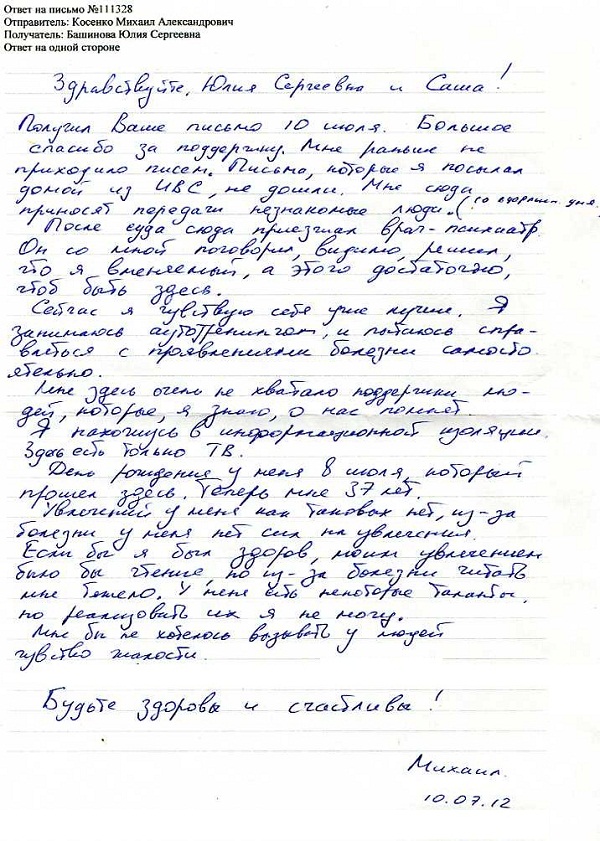 Ответ на письмо №111328
Отправитель: Косенко Михаил Александрович
Получатель: Башинова Юлия Сергеевна
Ответ на одной стороне
Здравствуйте, Юлия Сергеевна и Саша!
Получил Ваше письмо 10 июля. Большое
спасибо за поддержку. Мне раньше не
приходило писем. Письма, которые я посылал
домой из ИВС, не дошли. Мне сюда
приносят передачи незнакомые люди. (со второго дня.
После суда сюда приезжал врач-психиатр.
Он со мной поговорил, видимо, решил,
что я вменяемый, а этого достаточно,
чтоб быть здесь.
Сейчас я чувствую себя уже лучше. Я
занимаюсь аутотренингом, и пытаюсь спра-
виться с проявлениями болезни самосто
ятельно.
Мне здесь очень не хватало поддержки лю-
дей, которые, я знаю, о нас помнят.
Я нахожусь в информационной изоляции.
Здесь есть только ТВ.
День рождения у меня 8 июля, который
прошел здесь. Теперь мне 37 лет.
Увлечений у меня как таковых нет, из-за
болезни у меня нет сил на увлечения.
Если бы я был здоров, моим увлечением
было бы чтение, но из-за болезни читать
мне тяжело. У меня есть некоторые таланты,
но реализовать их я не могу.
Мне бы не хотелось вызывать у людей
чувство жалости.
Будьте здоровы и счастливы!
Михаил.
10.07.12